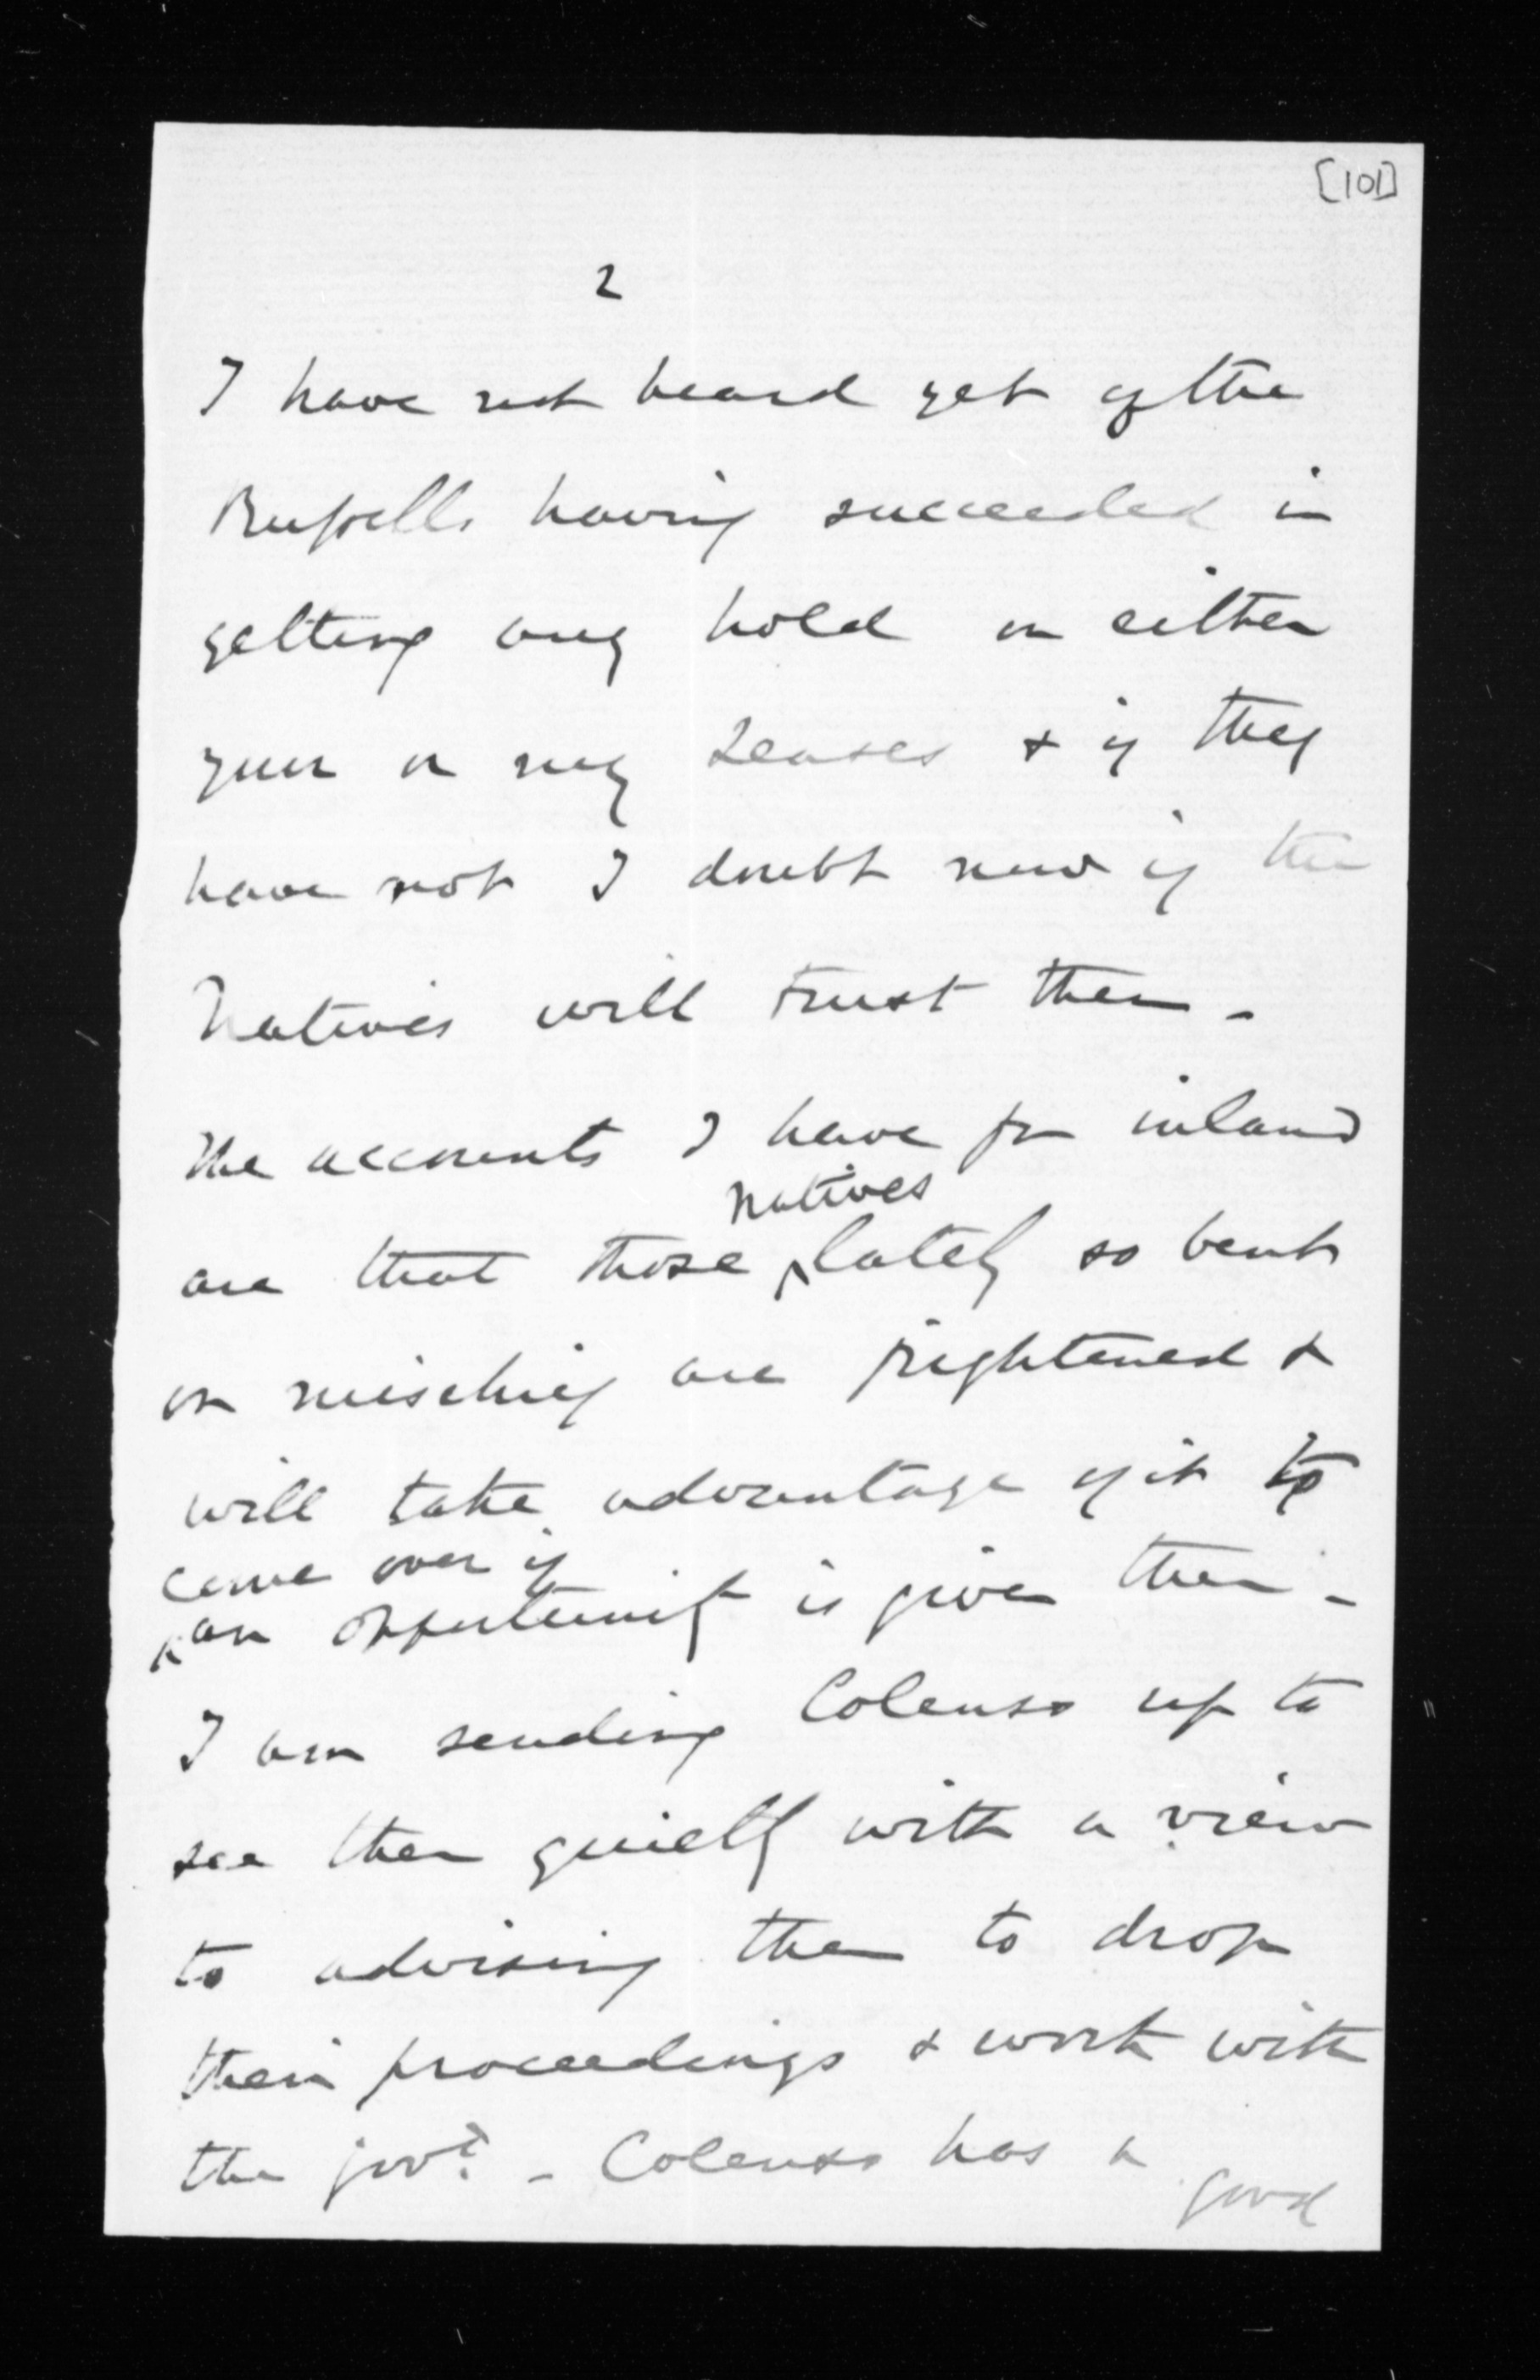 [101]
2
I have not heard yet of the
Russells having succeeded in
getting any hold on either
your or my Leases & if they
have not I doubt now if the
Natives will trust them -
The accounts I have fm inland
Natives
are that those lately so bent
on mischief are frightened &
will take advantage of it to
come over if
an opportunity is given them -
I am sending Colenso up to
see them quietly with a view
to advising them to drop
their proceedings & work with
the govt. - Colenso has a good